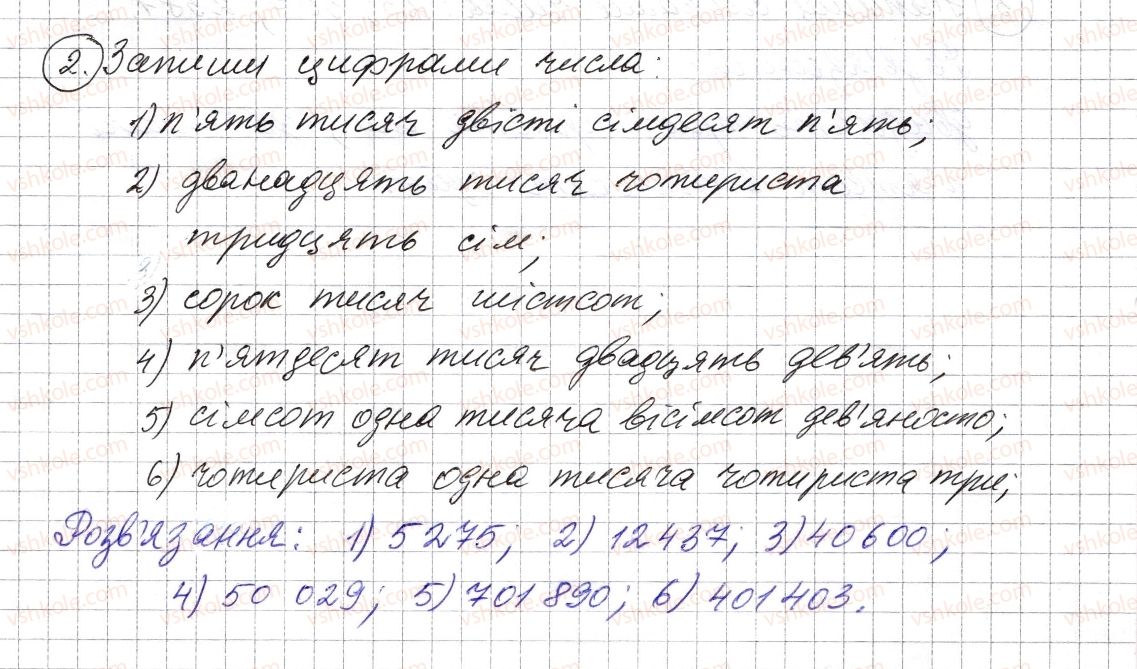 2. Запиши цифрами числа:
1) п'ять тисяч двісті сімдесят п'ять;
2) дванадцять тисяч чотириста
тридцять сім;
3) сорок тисяч шістсот;
4) п'ятдесят тисяч двадцять дев'ять;
5) сімсот одна тисяча вісімсот дев'яносто;
6) чотириста одна тисяча чотириста три;
Розв'язання: 1) 5275; 2) 12437; 3) 40600;
4) 50 029; 5) 701 890; 6) 401 403.